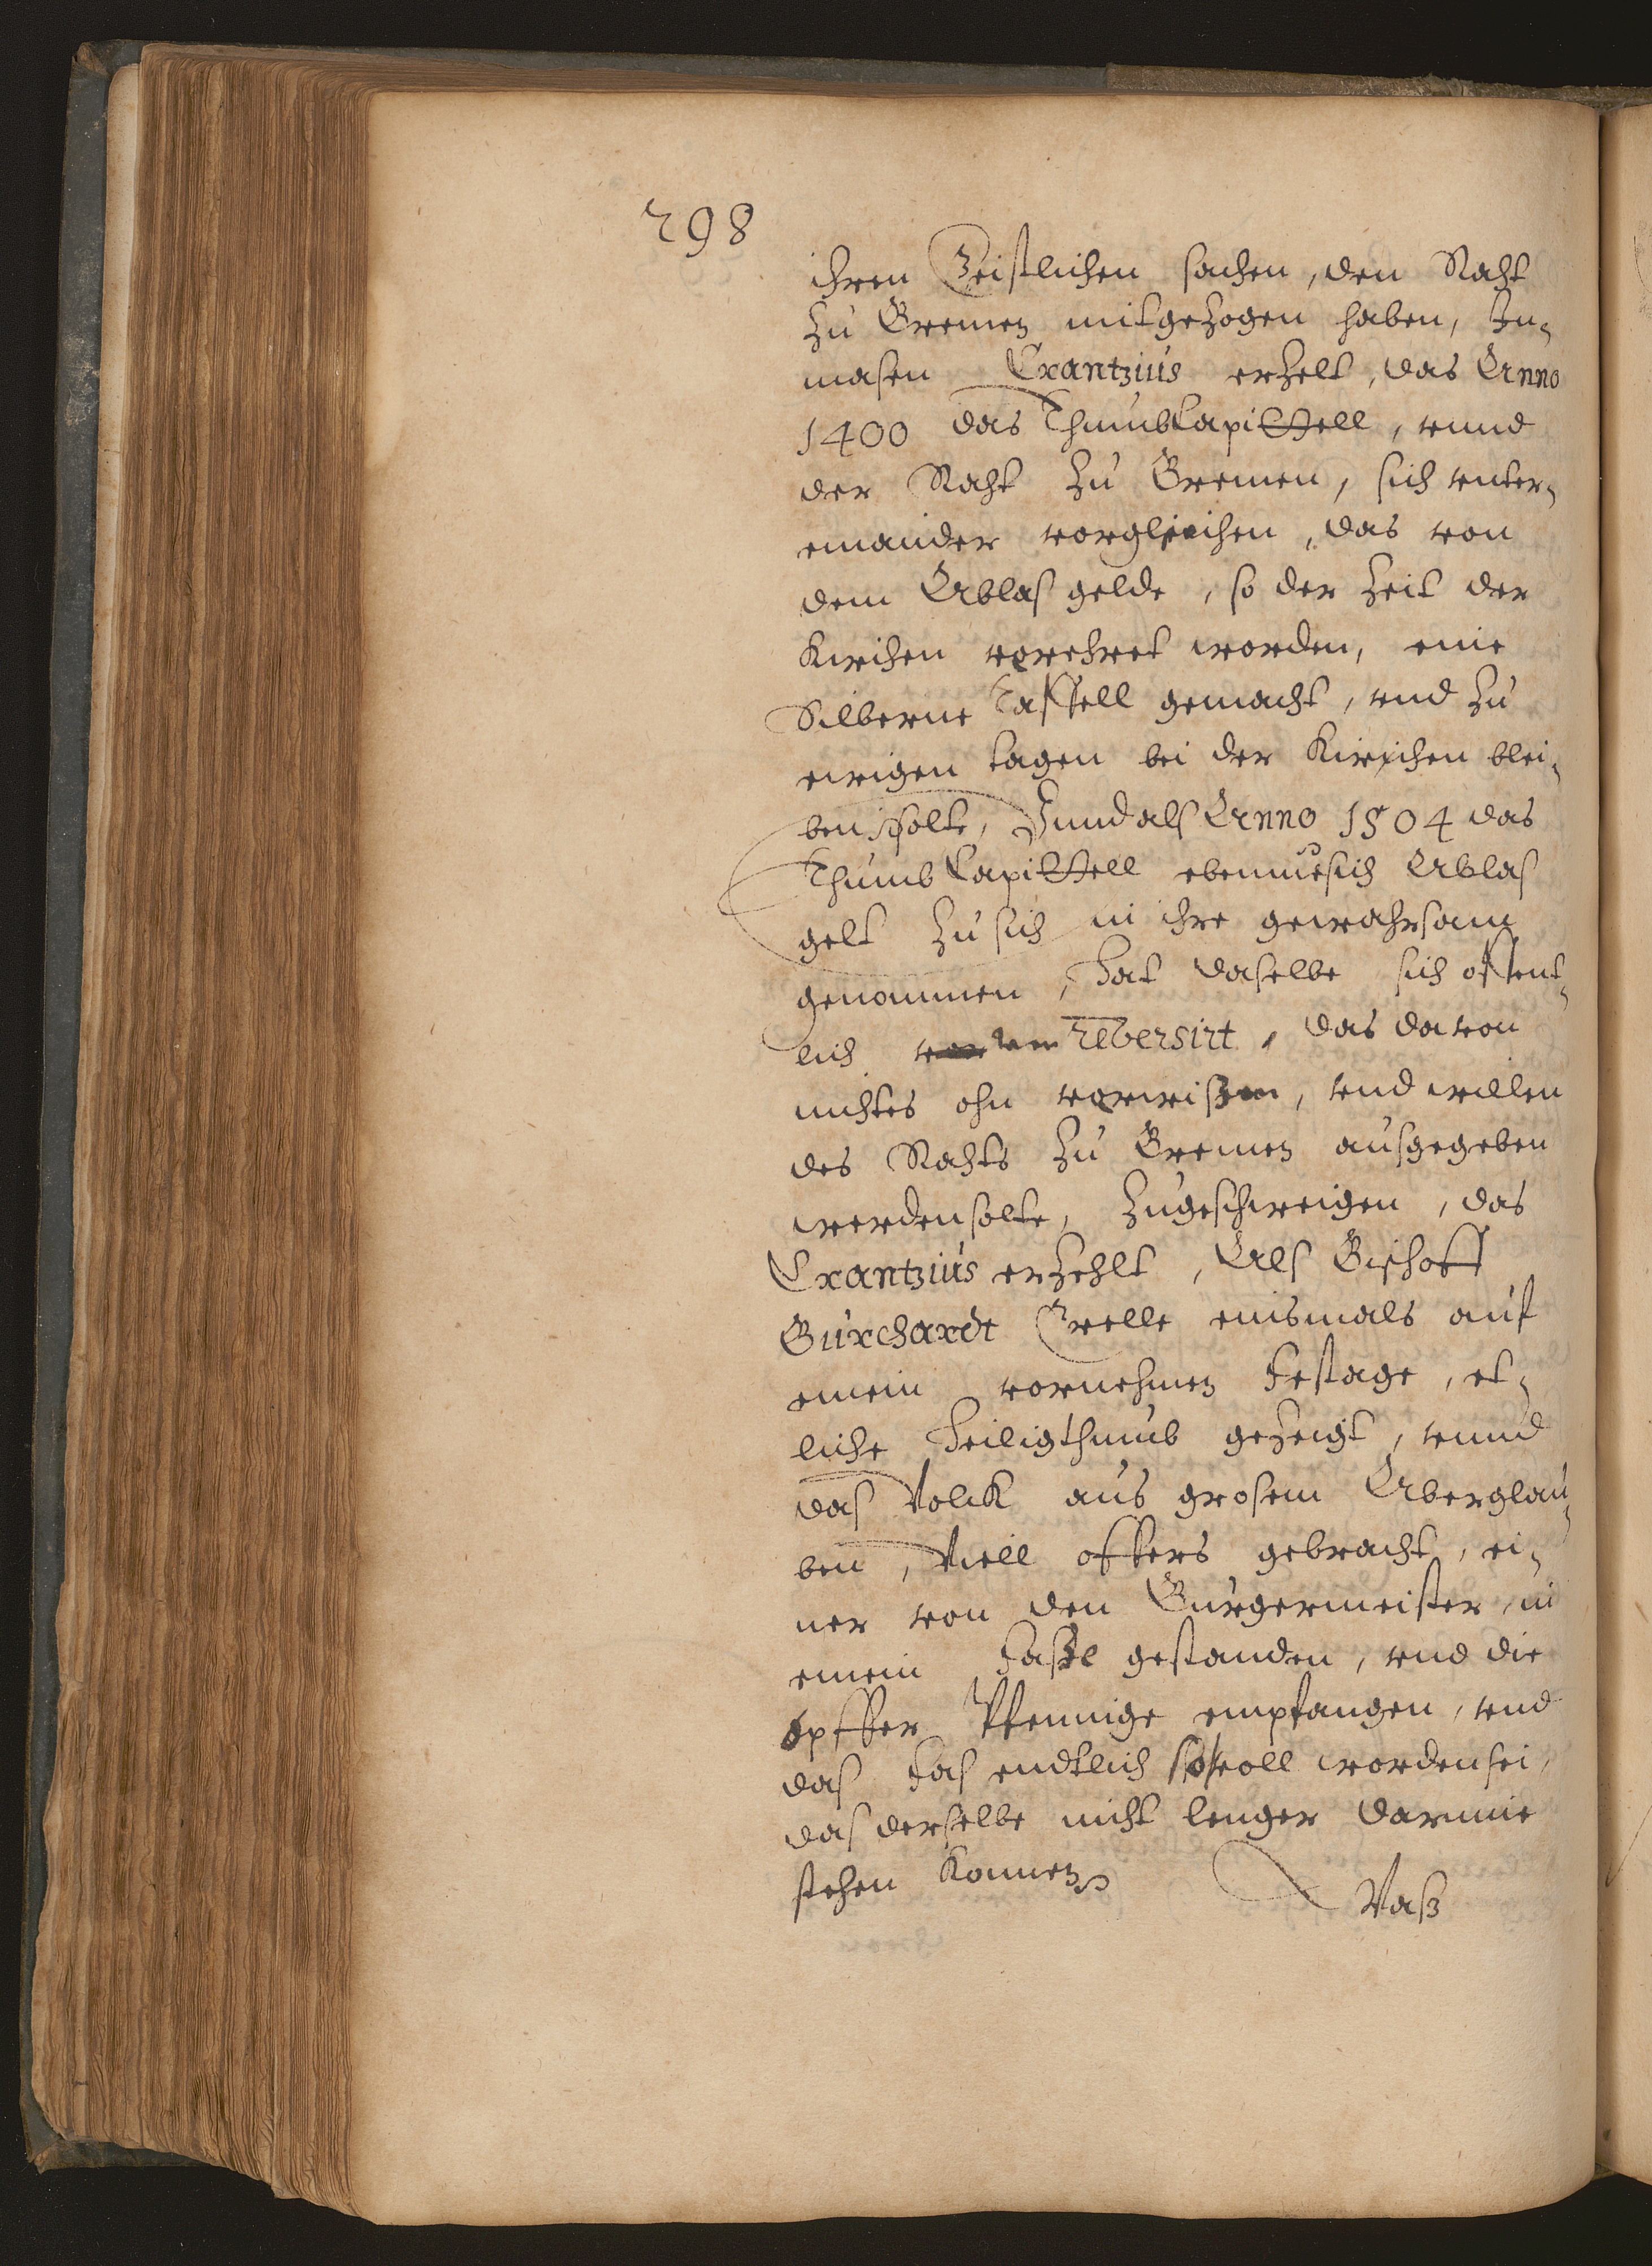 298
ihren Geistlichen sachen, den Raht
zu Bremen mitgezogen haben, In-
masen Crantzius erzelt, das Anno
1400 das Thumb Capittell, vnnd
der Raht zu Bremen, sich vnter-
einander vorgleichen, das von
dem Ablas gelde, so der Zeit der
Kirchen vorehret worden, eine
Silberne Taffell gemacht, vnd zu
ewigen tagen bei der Kirchen blei-
ben solte, Vnnd als Anno 1504 das
Thumb Capittell ebenmesich Ablas
gelt zu sich in ihre gewahrsam
genommen, hat daselbe sich offent-
lich reversirt, das davon
nichtes ohn vorwissen, vnd willen
des Rahts zu Bremen ausgegeben
werden solte, Zugeschweigen, das
Crantzius erzehlt, Als Bischoff
Burchardt Grelle einsmals auf
einem vornehmen Festage, et-
liche Heiligthumb gezeigt, vnnd
das Volck aus grosem Aberglau-
ben, Viell offers gebracht, ei-
ner von den Burgermeister, in
einem Fasse gestanden, vnd die
opffer Pfennige empfangen, vnd
das Fas endtlich so voll worden sei,
das derselbe nicht lenger darinne
stehen Konnen
Waß